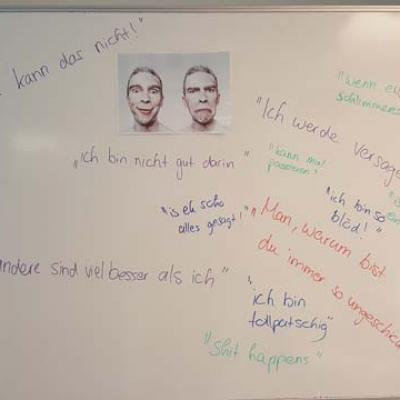 kann das nicht!"
"wenn
schlimmeres
"Ich werde versage
"ich bin nicht gut darin"
"kann mal
passieren"
"ich bin so
blöd!"
"is eh scho
alles gesagt!"
"Man, warum bist
du immer so ungeschick
andere sind viel besser als ich"
"ich bin
tollpatschig"
"Shit happens"